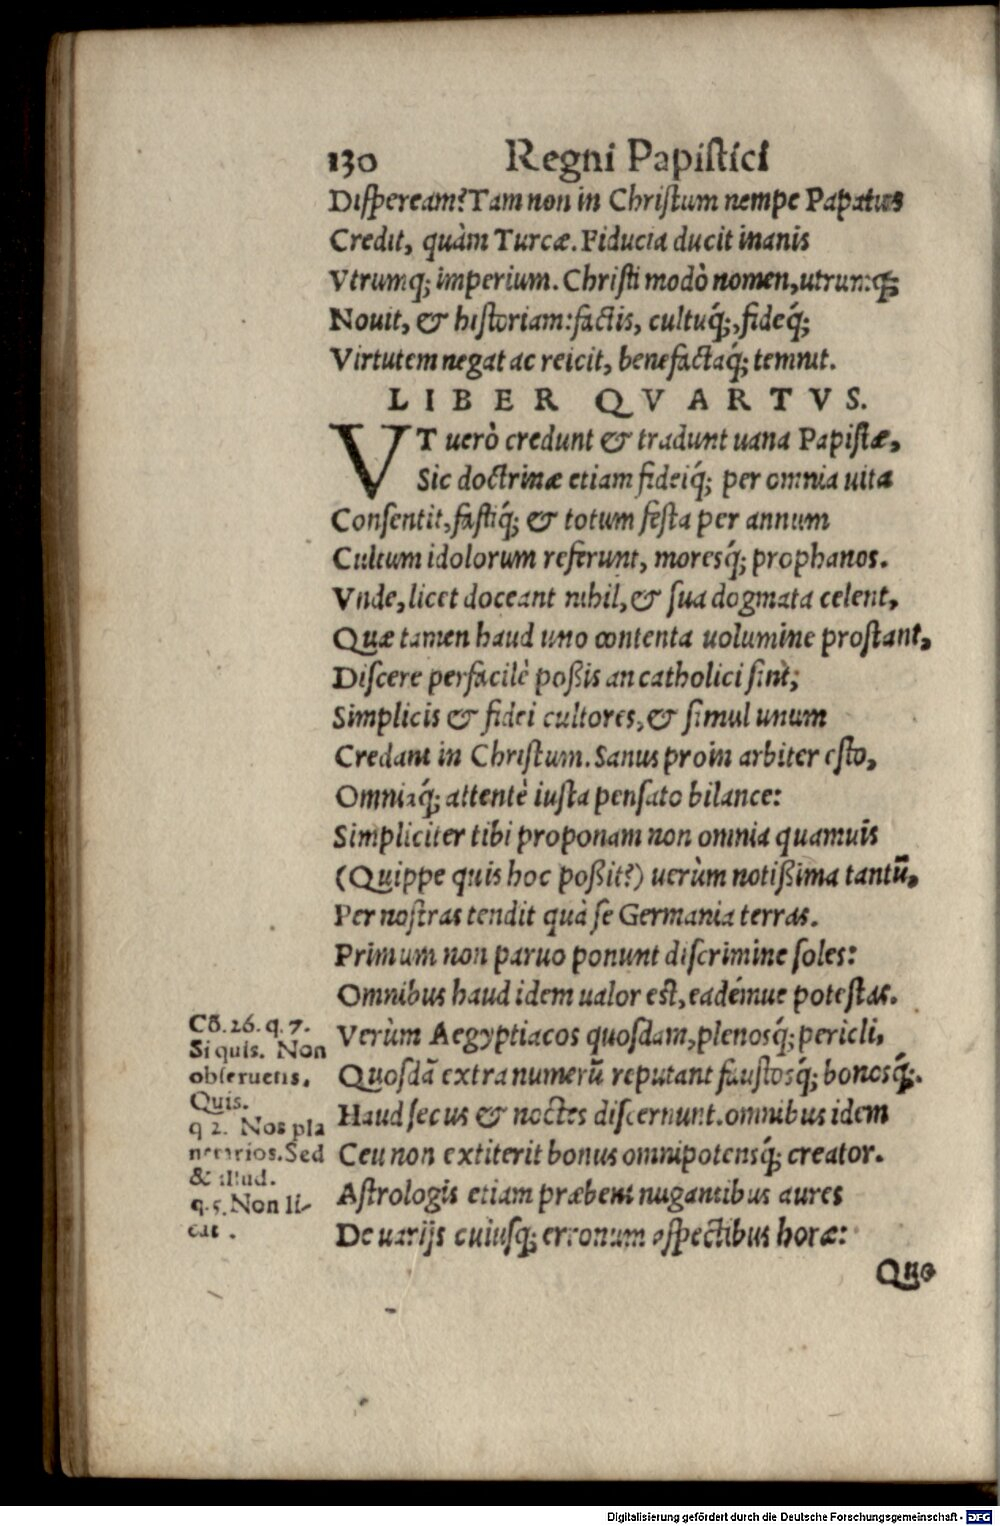 130 Regni Papistici
Dispeream? Tam non in Christum nempe Papatus
Credit, quàm Turcæ. Fiducia ducit inanis
Vtrumq; imperium. Christi modò nomen, utrumq;
Nouit, & historiam: factis, cultuq́;, fideq́;
Virtutem negat ac reicit, benefactaq́; temnit.
LIBER QVARTVS.
VT uerò credunt & tradunt uana Papistæ,
Sic doctrinæ etiam fideiq́; per omnia uita
Consentit, fastiq́; & totum festa per annum
Cultum idolorum referunt, moresq́; prophanos.
Vnde, licet doceant nihil, & sua dogmata celent,
Quæ tamen haud uno contenta uolumine prostant,
Discere perfacilè poßis an catholici sint;
Simplicis & fidei cultores, & simul unum
Credant in Christum. Sanus proin arbiter esto,
Omniaq́; attentè iusta pensato bilance:
Simpliciter tibi proponam non omnia quamuis
(Quippe quis hoc poßit?) uerùm notißima tantū,
Per nostras tendit quà se Germania terras.
Primum non paruo ponunt discrimine soles:
Omnibus haud idem ualor est, eadémue potestas.
Verùm Aegyptiacos quosdam, plenosq́; pericli,
Quosdā extra numerū reputant faustosq́; bonosq́;.
Haud secus & noctes discernunt. omnibus idem
Ceu non extiterit bonus omnipotensq́; creator.
Astrologis etiam præbent nugantibus aures
De uarijs cuiusq; erronum aspectibus horæ:
Quo
Cō. 26. q. 7.
Si quis. Non
obseruetis.
Quis.
q 2. Nos pla
netarios. Sed
& illud.
q. 5. Non li-
cat.
Digitalisierung gefördert durch die Deutsche Forschungsgemeinschaft - DFG